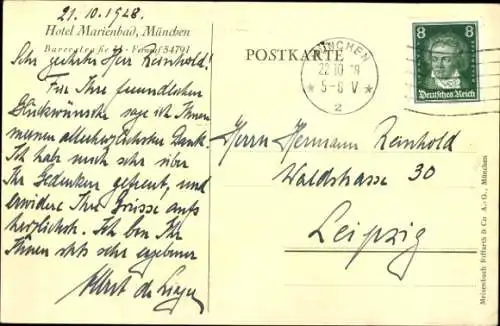 21.10.1928.
Hotel Marienbad, München
Barerstraße 11 · Fernruf 54791
Sehr geehrter Herr Reinhold!
Für Ihre freundlichen
Glückwünsche sage ich Ihnen
meinen allerherzlichsten Dank.
Ich habe mich sehr über
Ihr Gedenken gefreut, und
erwidere Ihre Grüsse aufs
herzlichste. Ich bin Ihr
Ihnen stets sehr ergebener
Albert
POSTKARTE
MÜNCHEN
22.10
5-6 V
2
8 8
Deutsches Reich
Herrn Hermann Reinhold
Waldstrasse 30
Leipzig
Meisenbach Riffarth & Co. A.-G., München